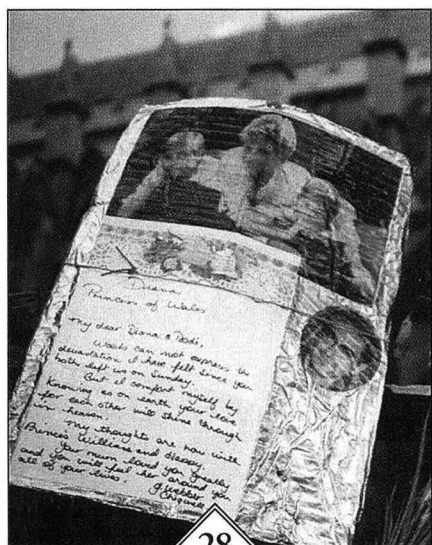 Diana
Princess of Wales
My dear Diana & Dodi,
Words can not express the
devastation I have felt since you
both left us on Sunday.
But I comfort myself by
knowing as on earth your love
for each other will shine through
in heaven.
My thoughts are now with
Princes William and Harry.
Your mum loved you greatly
and you will feel her around you
all of your lives.
Chigwell
28